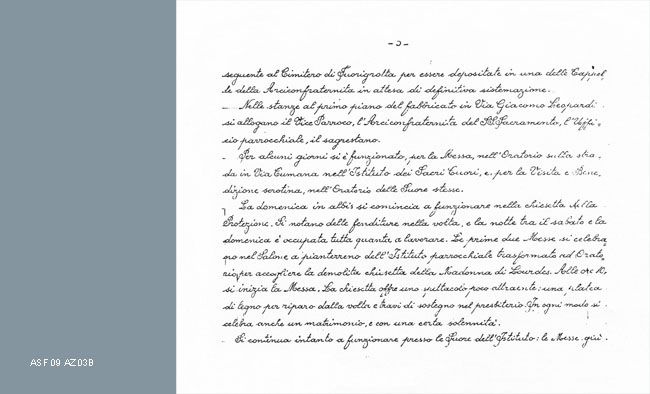 - 5 -
seguente al Cimitero di Fuorigrotta per essere depositate in una delle Cappel
le della Arciconfraternita in attesa di definitiva sistemazione.
- Nelle stanze al primo piano del fabbricato in Via Giacomo Leopardi
si allogano il Vice Parroco, l'Arciconfraternita del SS. Sacramento, l'Uffi-
cio parrocchiale, il sagrestano.
- Per alcuni giorni si è funzionato, per la Messa, nell'Oratorio sulla stra-
da in Via Cumana nell'Istituto dei Sacri Cuori, e, per la Visita e Bene-
dizione serotina, nell'Oratorio delle Suore stesse.
La domenica in albis si comincia a funzionare nella chiesetta della
Protezione. Si notano delle fenditure nella volta, e la notte tra il sabato e la
domenica è occupata tutta quanta a lavorare. Le prime due Messe si celebra
no nel Salone a pianterreno dell'Istituto parrocchiale trasformato ad Orato
rio, per accogliere la demolita chiesetta della Madonna di Lourdes. Alle ore 10,
si inizia la Messa. La chiesetta offre uno spettacolo poco attraente: una platea
di legno per riparo dalla volta e travi di sostegno nel presbiterio. In ogni modo si
celebra anche un matrimonio, e con una certa solennità.
- Si continua intanto a funzionare presso le Suore dell'Istituto: le Messe giù.
ASF 09 AZ03B